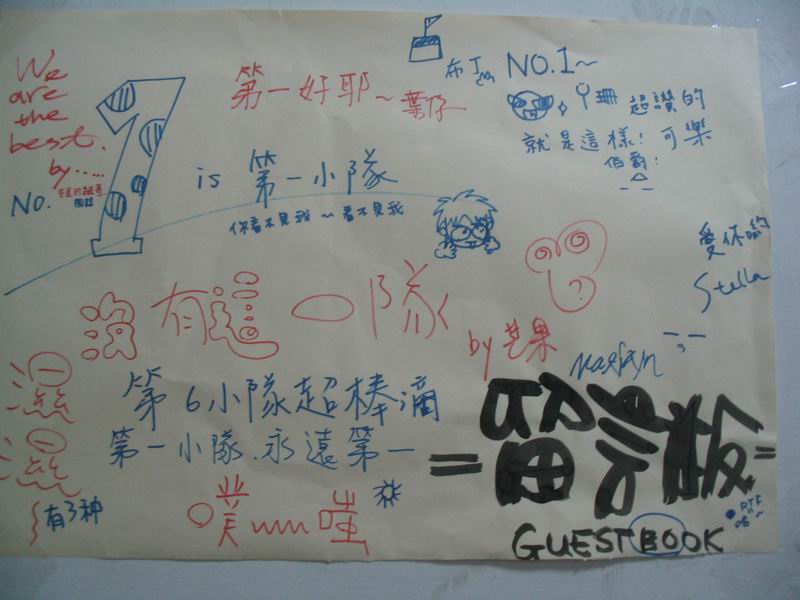 We
are
the
best.
by.....
NO. 1 is 第一小隊
第一好耶~葉仔
布丁
NO.1~
超讚的
就是這樣!可樂
伯爵!
你看不見我~看不見我
愛你喲
Stella
沒有這一隊
by 芒果
濕
濕
第6小隊超棒滴
第一小隊永遠第一
有了种
噗
GUESTBOOK